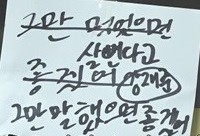 그만 먹었으면
살뺀다고
좋겠어
그만 말했으면 좋겠어